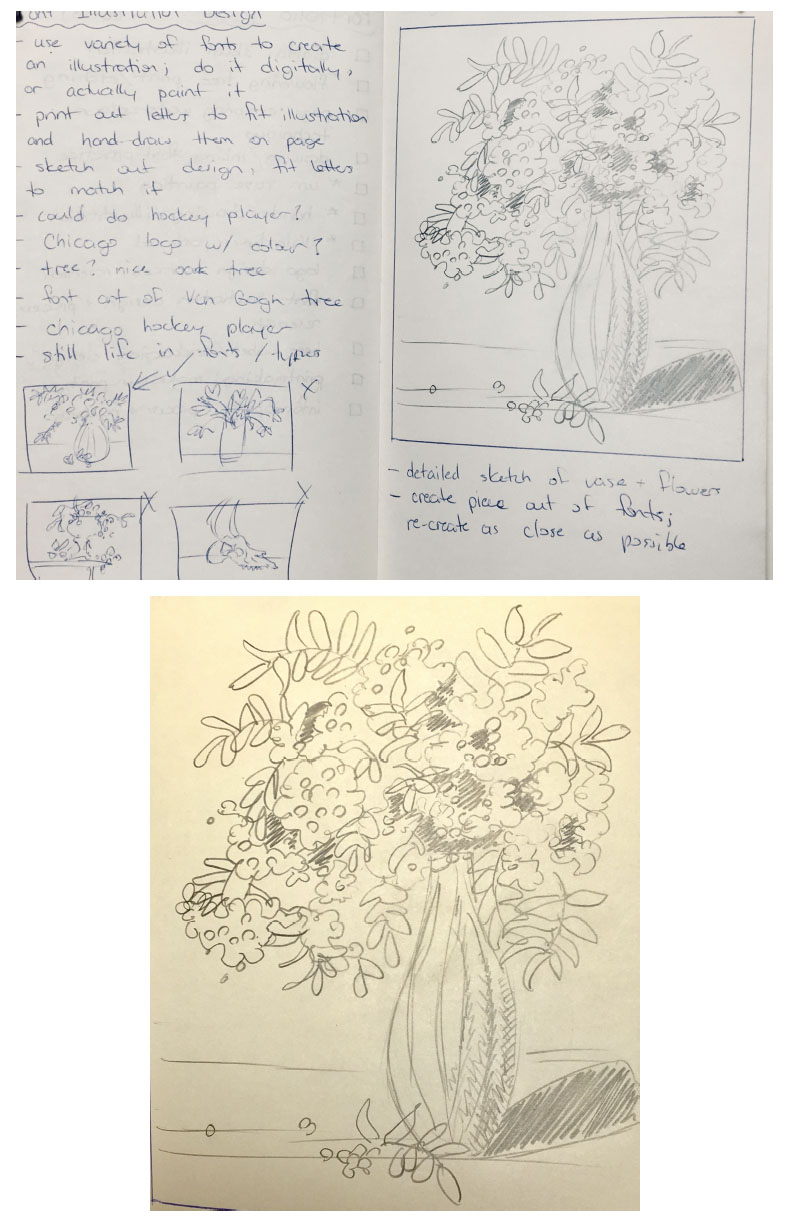 Font Illustration Design
- use variety of fonts to create
an illustration; do it digitally,
or actually paint it
- print out letters to fit illustration
and hand-draw them on page
- sketch out design, fit letters
to match it
- could do hockey player?
- Chicago logo w/ colour?
- tree? nice oak tree
- font art of Van Gogh tree
- chicago hockey player
- still life in fonts / types
X
X
X
- detailed sketch of vase + flowers
- create piece out of fonts;
re-create as close as possible